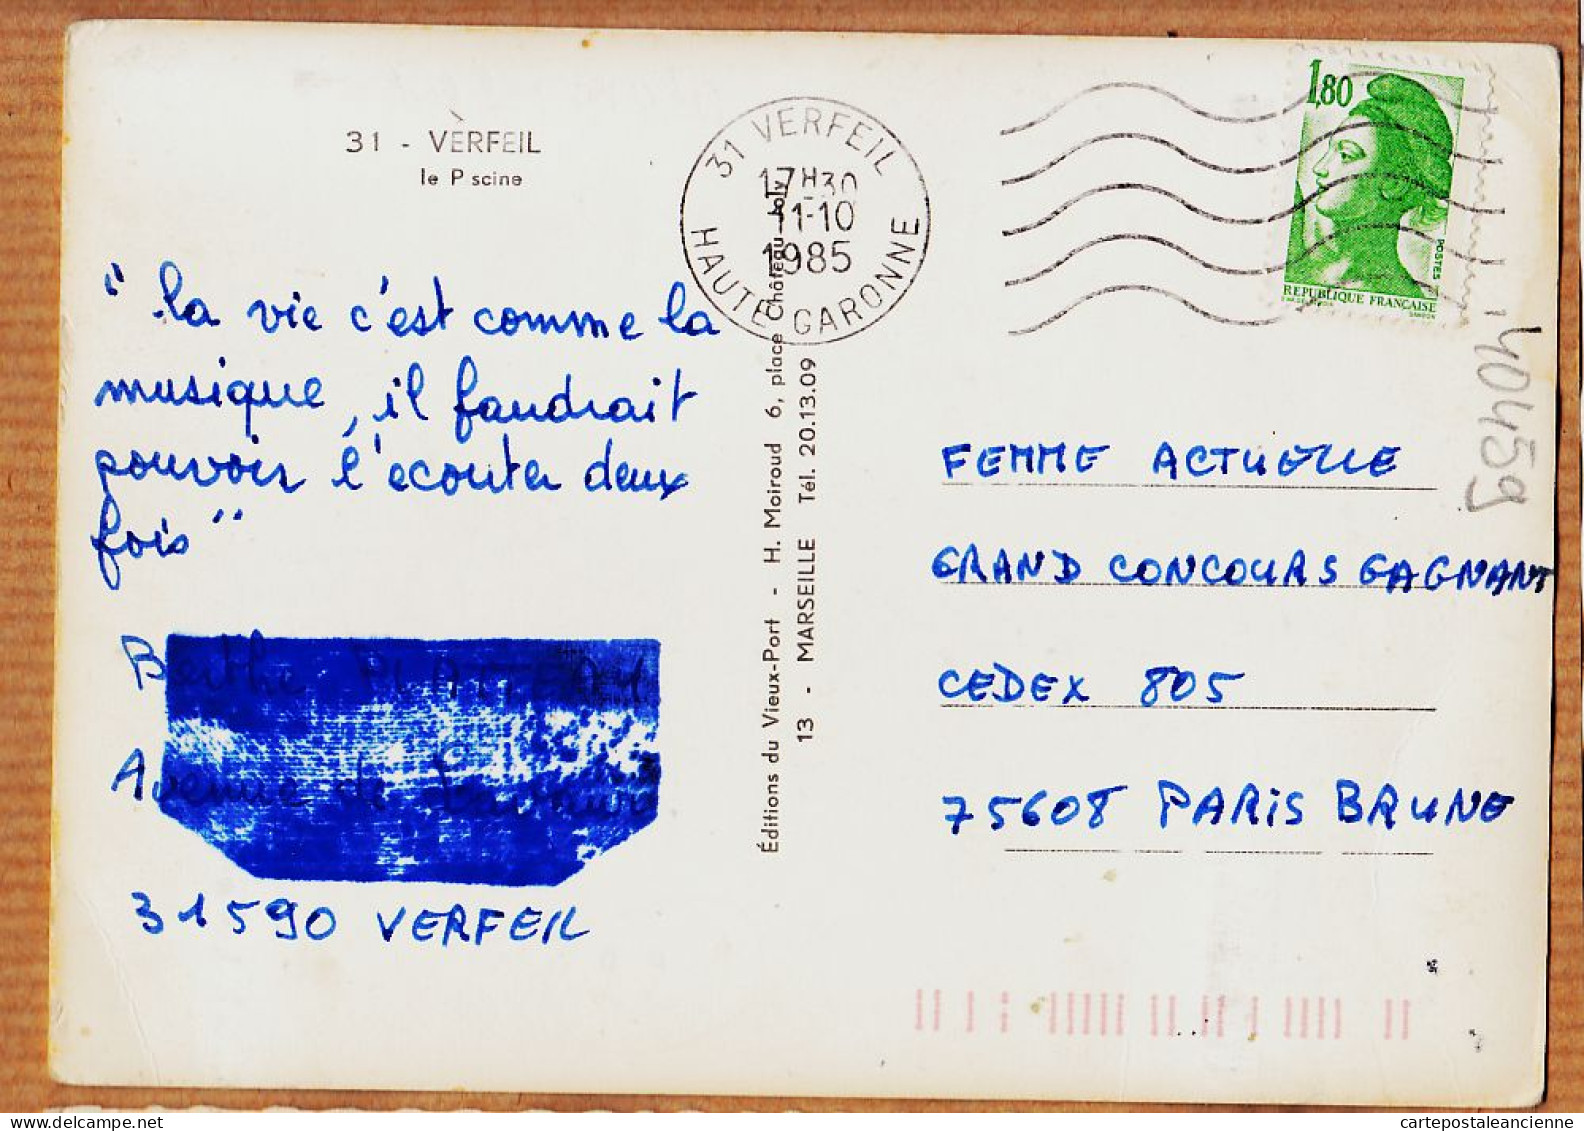 31 - VERFEIL
le Piscine
31 VERFEIL
17H30
11-10
1985
HAUTE GARONNE
1,80
POSTES
REPUBLIQUE FRANÇAISE
"la vie c'est comme la
musique, il faudrait
pouvoir l'ecouter deux
fois"
Berthe
Avenue de
31590 VERFEIL
Éditions du Vieux-Port - H. Moiroud 6, place Château Joly
13 - MARSEILLE Tél. 20.13.09
FEMME ACTUELLE
GRAND CONCOURS GAGNANT
CEDEX 805
75608 PARIS BRUNE
140459
cartepostaleancienne